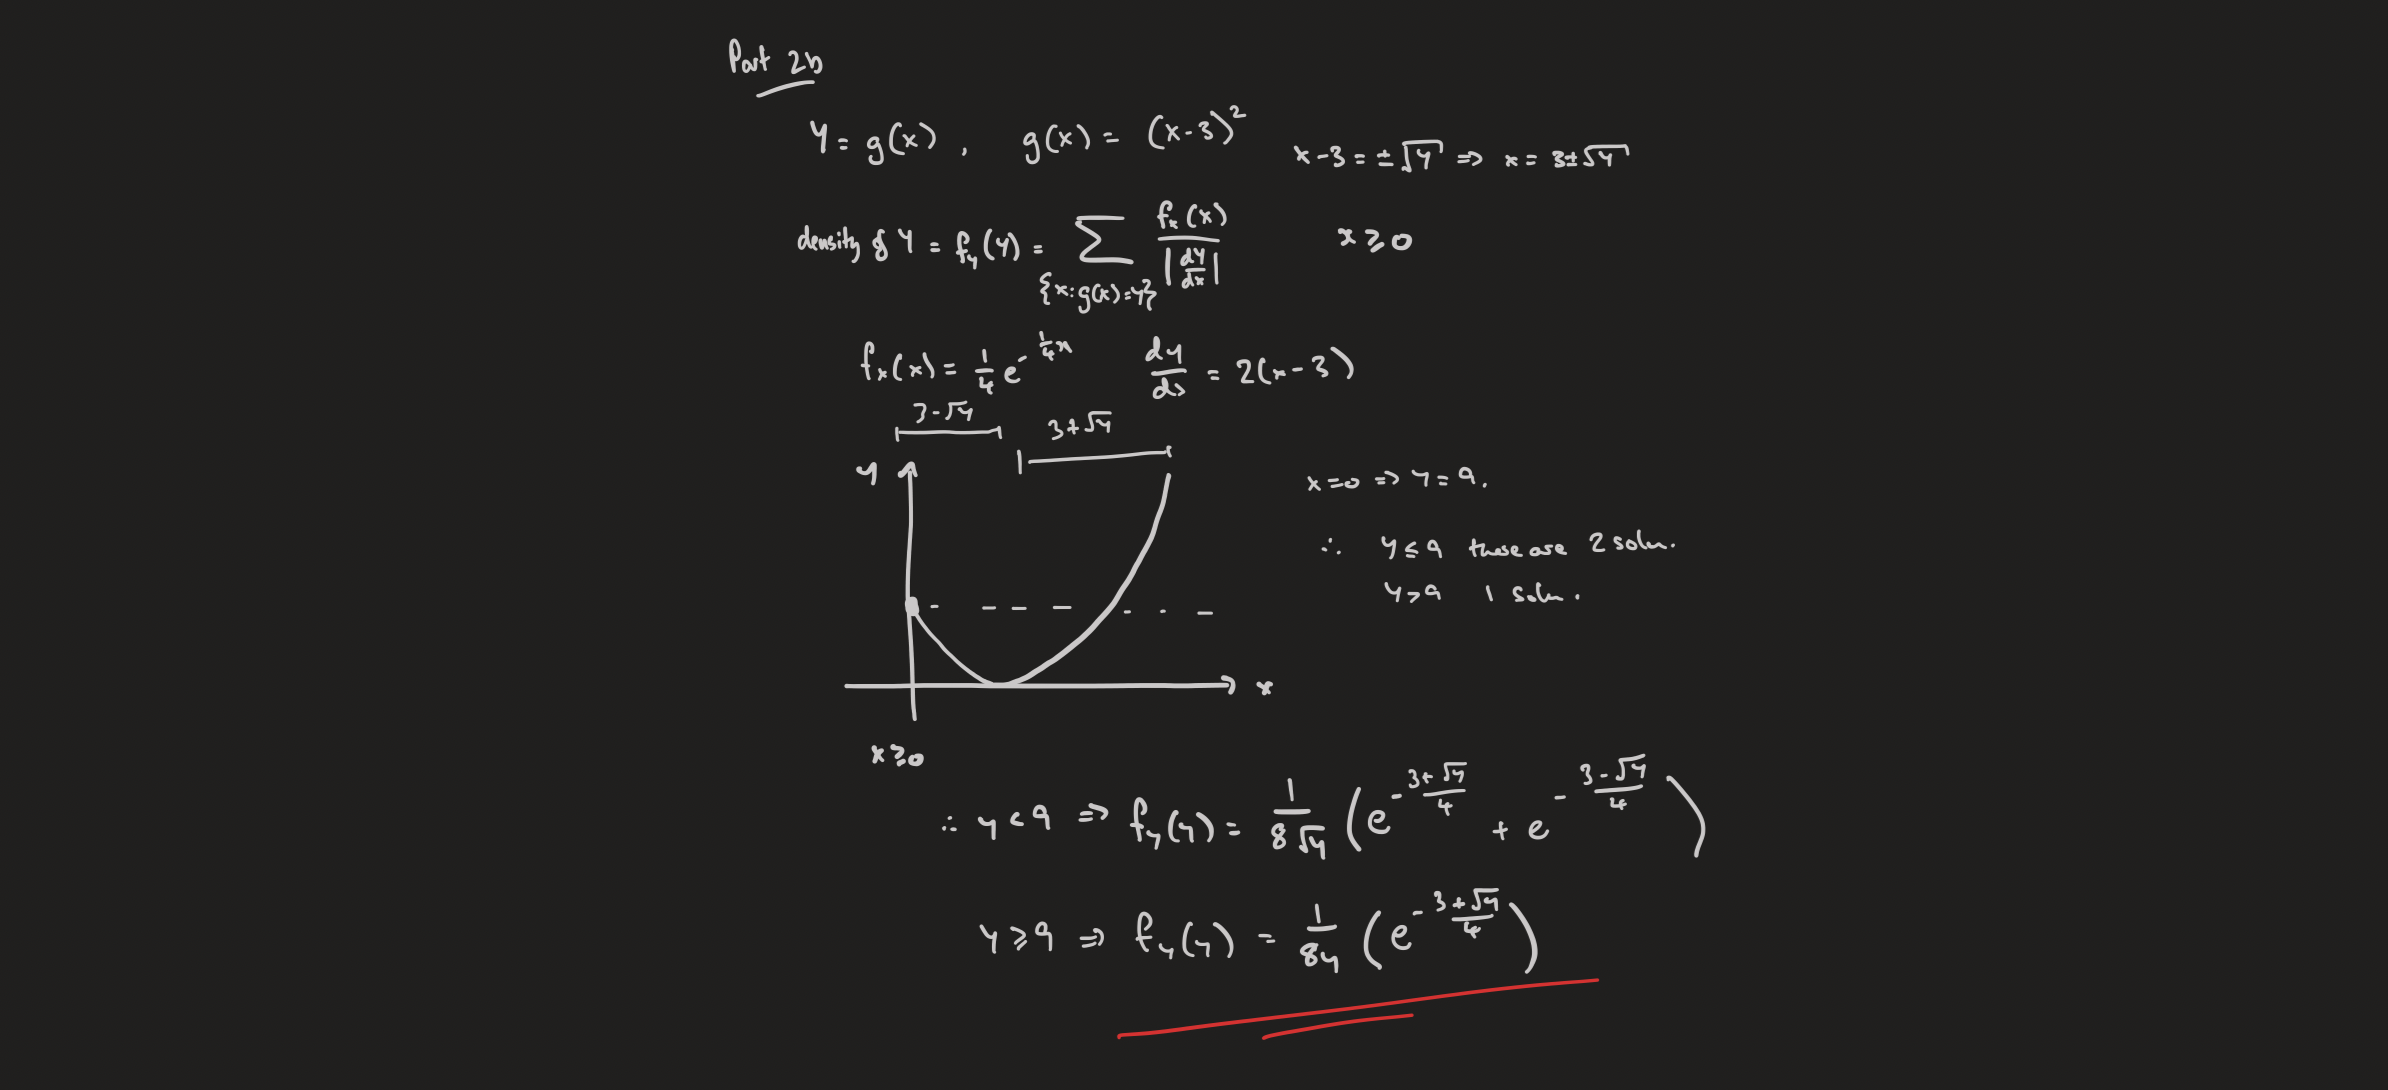 Part 2b
Y = g(x) , g(x) = (x-3)²
x-3 = ±√y ⇒ x = 3±√y
density of Y = f_Y(y) = ∑_{x: g(x)=y} f_x(x) / |dy/dx|
x ≥ 0
f_x(x) = 1/4 e^{-1/4 x} dy/dx = 2(x-3)
3-√y
3+√y
y
x=0 ⇒ y=9.
∴ y ≤ 9 these are 2 soln.
y > 9 1 soln.
x
x ≥ 0
∴ y < 9 ⇒ f_Y(y) = 1/(8√y) (e^{-(3+√y)/4} + e^{-(3-√y)/4})
y ≥ 9 ⇒ f_Y(y) = 1/(8y) (e^{-(3+√y)/4})